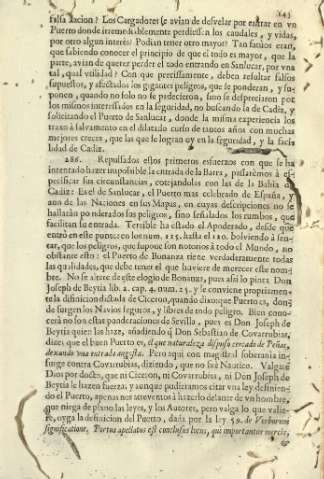 143
falsa racion? Los Cargadores se avian de desvelar por entrar en vn
Puerto donde irremediablemente perdiessen los caudales, y vidas,
por otro algun interès? Podian tener otro mayor? Tan fatuos eran,
que sabiendo conocer el principio de que el todo es mayor, que la
parte, avian de querer perder el todo entrando en Sanlucar, por vna
tal, qual vtilidad? Con que precissamente, deben resultar falsos
supuestos, y afectados los gigantes peligros, que se ponderan, y su-
ponen, quando no solo no se padecieron, sino se despreciaron por
los mismos interessados en la seguridad, no buscando la de Cadiz, y
solicitando el Puerto de Sanlucar, donde la misma experiencia los
traxo à salvamento en el dilatado curso de tantos años con muchas
mejores cruces, que las que se logran oy en la seguridad, y la faci-
lidad de Cadiz.
286. Repulsados estos primeros esfuerços con que se ha
intentado hazer impossible la entrada de la Barra, passarèmos à es-
pecificar sus circunstancias, cotejandolas con las de la Bahia de
Cadiz: Es el de Sanlucar, el Puerto mas celebrado de España, y
aun de las Naciones en sus Mapas, en cuyas descripciones no se
hallaràn ponderados sus peligros, sino señalados los rumbos, que
facilitan su entrada. Terrible ha estado el Apoderado, desde que
entrò en este punto: en los num. 115. hasta el 120. bolviendo à sen-
tar, que los peligros, que supone son notorios à todo el Mundo, no
obstante esto: el Puerto de Bonanza tiene verdaderamente todas
las qualidades, que debe tener el que huviere de merecer este nom-
bre. No se altere de este elogio de Bonanza, pues assi lo pinta Don
Joseph de Beytia lib. 2. cap. 4. num. 25. y le conviene propriamen-
te la disinicion dictada de Ciceron, quando dixo que Puerto es, don-
de surgen los Navios seguros, y libres de todo peligro. Bien cono-
cerà no son estas ponderaciones de Sevilla, pues es Don Joseph de
Beytia quien las haze, añadiendo, que Don Sebastian de Covarrubias,
dize: que el buen Puerto es, el que naturaleza dispuso cercado de Peñas,
dexando vna entrada angosta. Pero aqui con magistral soberania in-
surge contra Covarrubias, diziendo, que no fuè Nautico. Valgame
Dios por docto, que ni Ciceron, ni Covarrubias, ni Don Joseph de
Beytia le hazen fuerza; y aunque pudieramos citar vna ley definien-
do el Puerto, apenas nos atrevemos à hazerlo delante de vn hombre,
que niega de plano las leyes, y los Autores, pero valga lo que valie-
re, oyga la definicion del Puerto, dada por la ley 59. de Verborum
significatione, Portus apellatus est conclusus locus, quo importantur merces,